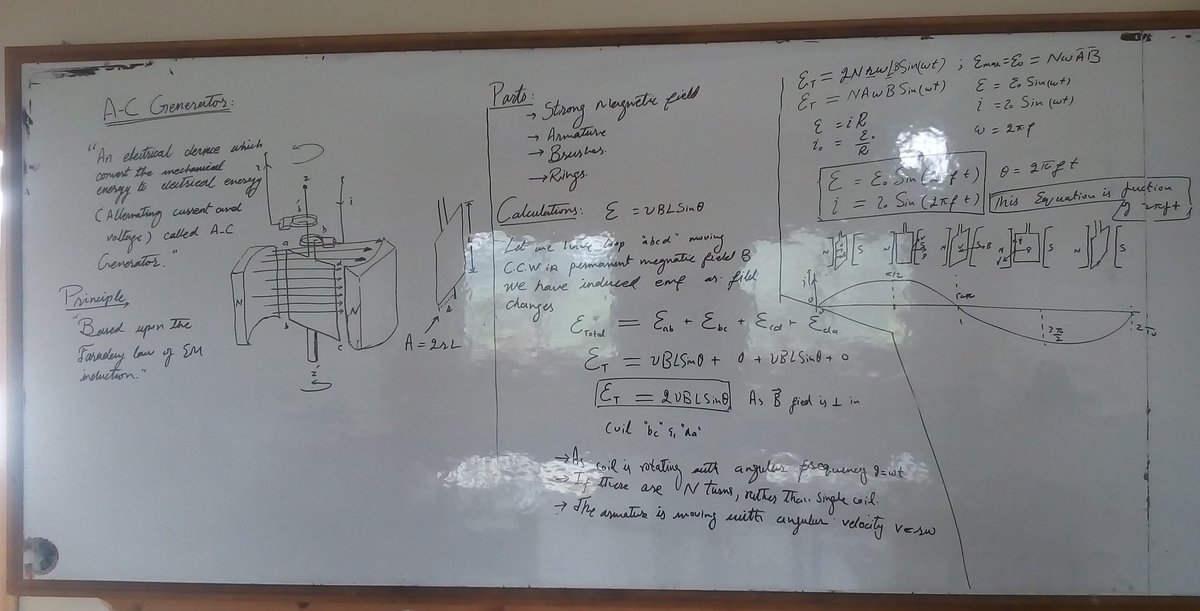 A-C Generator:
"An electrical device which
convert the mechanical
energy to electrical energy
(Alternating current and
voltage) called A-C
Generator."
Principle
"Based upon the
Faraday law of EM
induction."
z
b'
b
i
a
d
N
N
b
c
z'
A = 2rL
Parts:
→ Strong Magnetic field
→ Armature
→ Brushes.
→ Rings.
Calculations: ℰ = vBLSinθ
Let we have loop "abcd" moving
C.C.W in permanent megnatic field B
we have induced emf as field
changes
ℰTotal = ℰab + ℰbc + ℰcd + ℰda
ℰT = vBLSinθ + 0 + vBLSinθ + 0
ℰT = 2vBLSinθ As B⃗ field is ⊥ in
coil "bc" & "da"
→ As coil is rotating with angular frequency θ=ωt
→ If there are N turns, rather than single coil.
→ The armature is moving with angular velocity v=rω
ℰT = 2NrωLBSin(ωt) ; ℰmax=ℰ0 = NωAB
ℰT = NAωBSin(ωt) ℰ = ℰ0 Sin(ωt)
i = i0 Sin(ωt)
ℰ = iR
i0 = ℰ0/R
ω = 2πf
ℰ = ℰ0 Sin(2πft)
i = i0 Sin(2πft)
θ = 2πft
This Equation is function
of 2πft
N S N N S N S N S
i
0
π/2
π
3π/2
2π